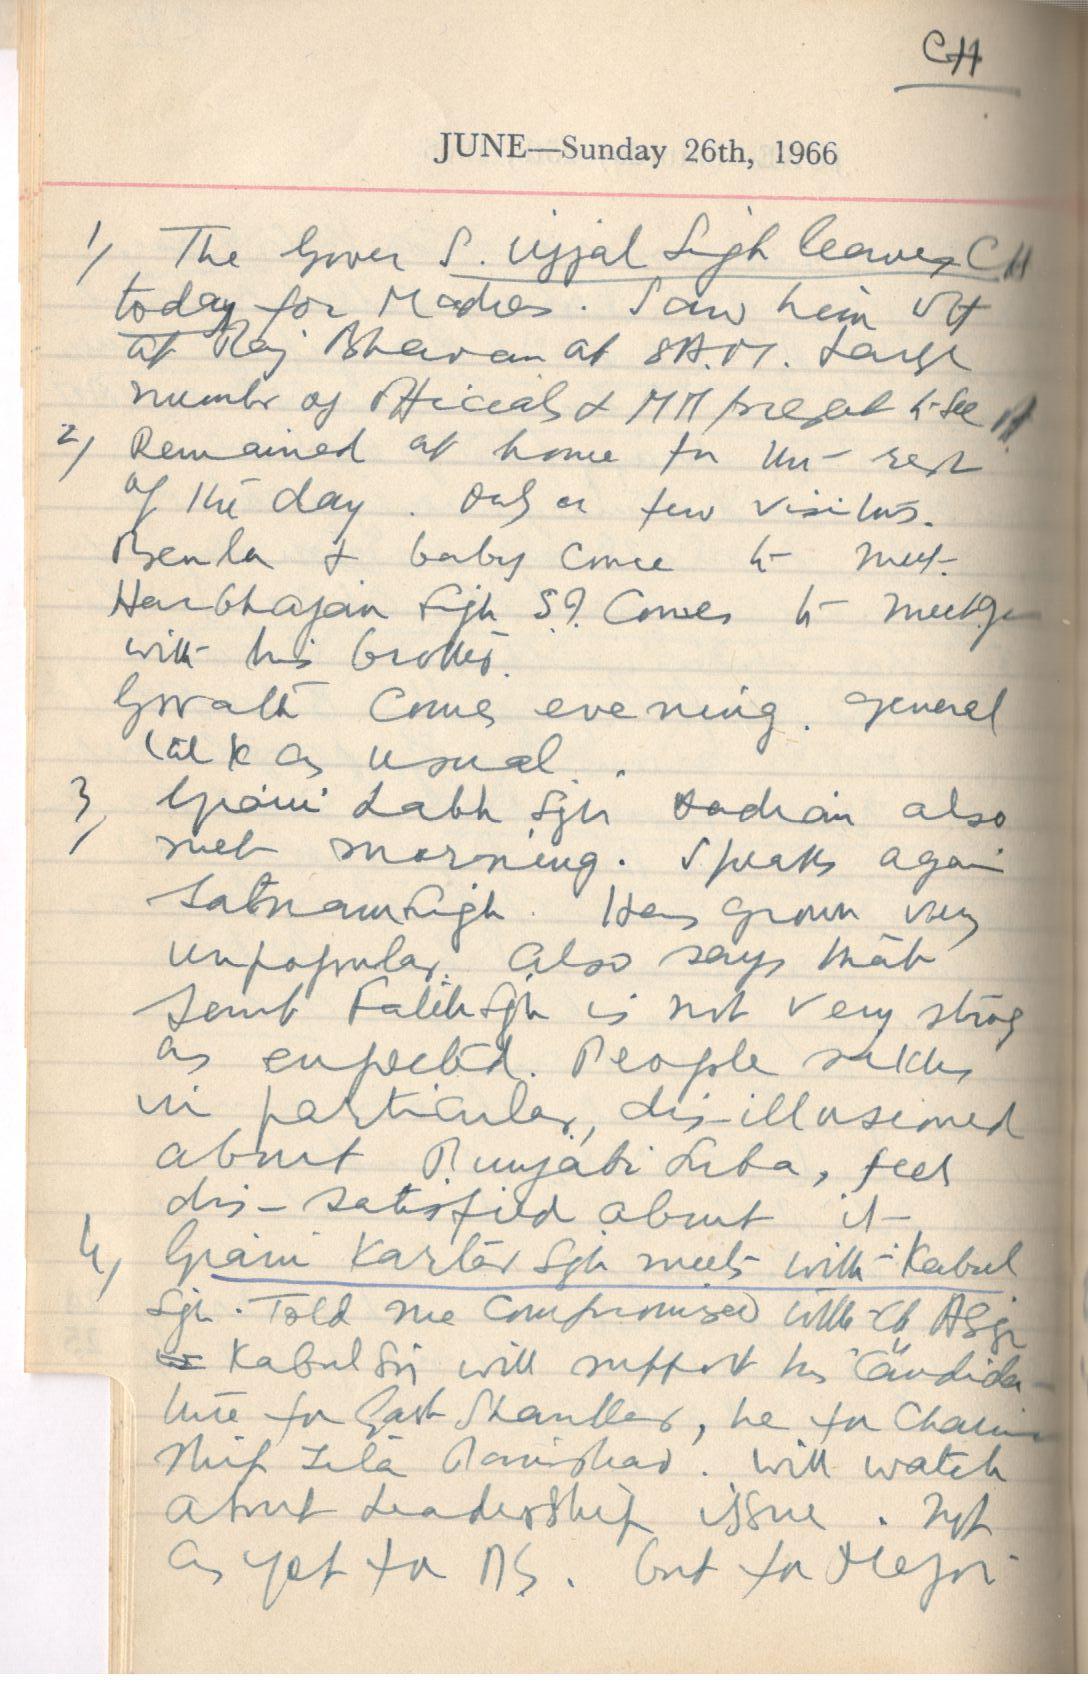 CH
JUNE—Sunday 26th, 1966
1) The Gover S. Ujjal Singh leaves CH
today for Madras. Saw him off
at Raj Bhavan at 8A.M. Large
number of officials & MM present to see
2) Remained at home for the rest
of the day. Only a few visitors.
& baby come to meet.
Harbhajan Singh S.I. Comes to meet
with his brother.
Comes evening. general
talk as usual.
3) Gyani Labh Sgh also
met morning. Speaks again
Satnam Singh. Has grown very
unpopular. Also says that
Sant Fateh Sgh is not very strong
as expected. People sikhs
in particular, dis-illusioned
about Punjabi Suba, feel
dis-satisfied about it
4) Gyani Kartar Sgh meets with Kabul
Sgh. Told me compromised with
Kabul Sgh will support his candida-
ture for , he for Chairman
ship Zila Parishad. will watch
about Leadership issue. Not
as yet for . but for Major